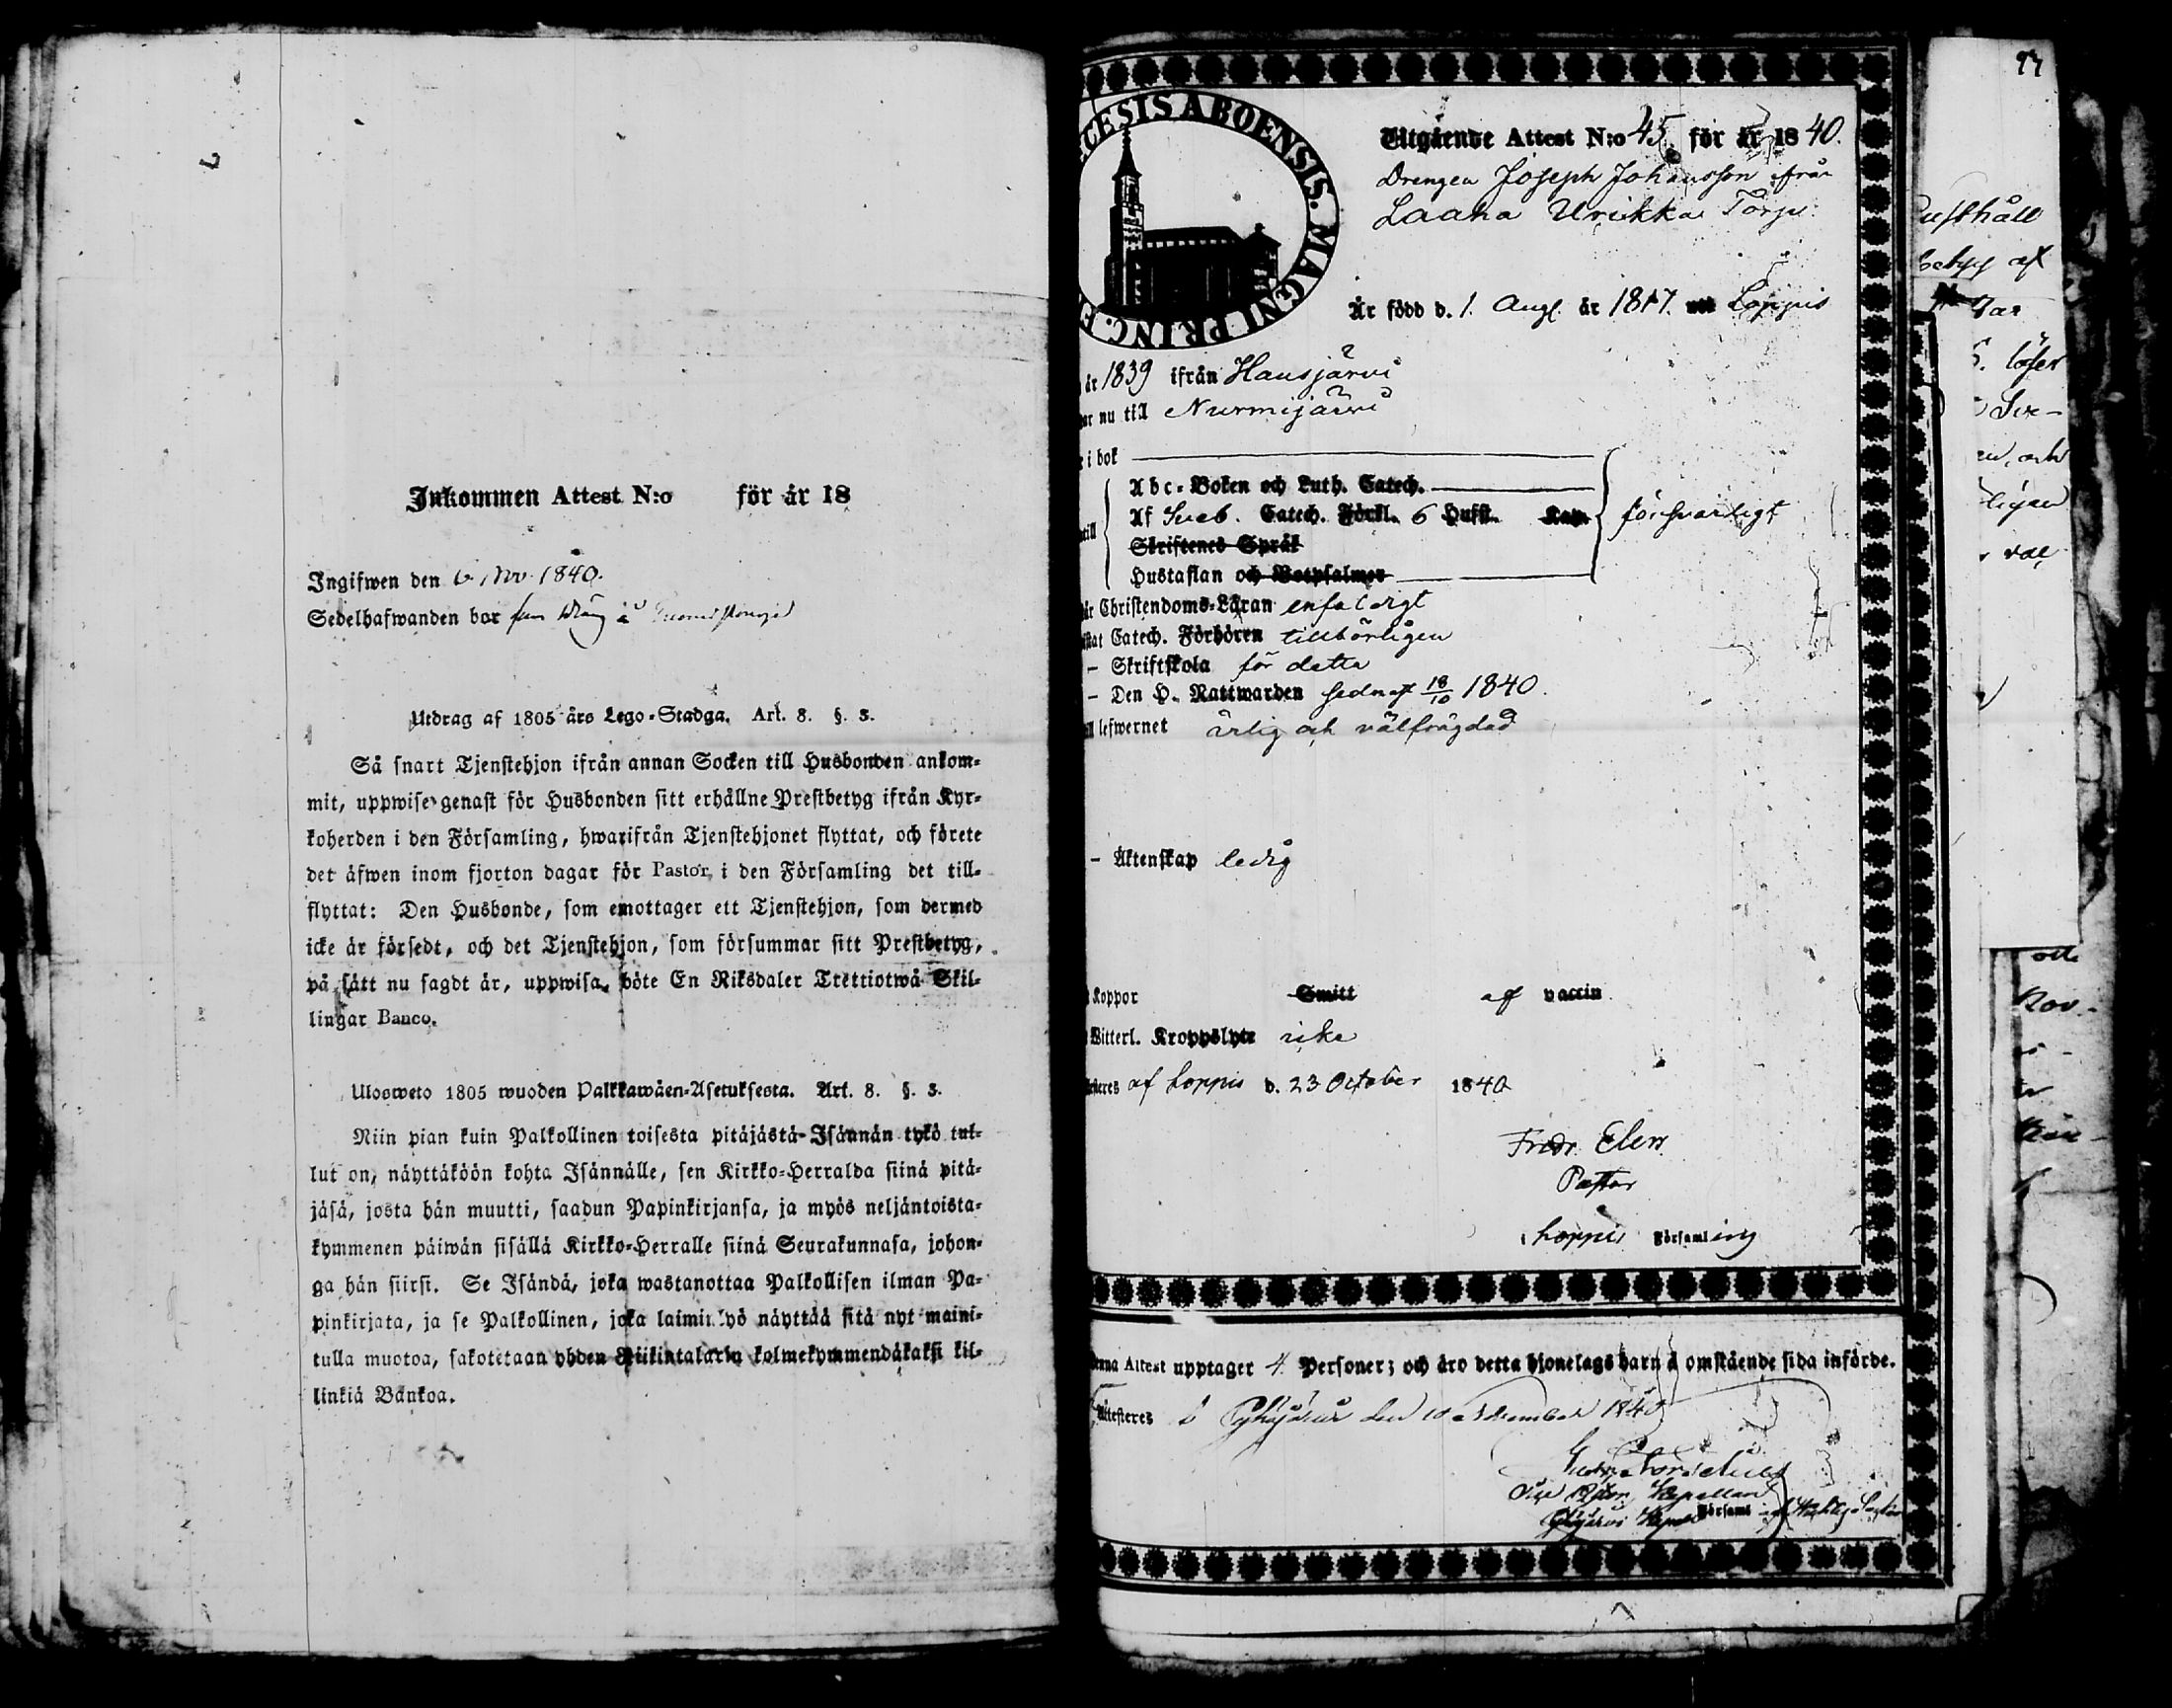 Inkommen Attest N:o för år 18
Ingifwen den 6 Nov. 1840.
Sedelhafwanden bor som dräng å
Utdrag af 1805 års Lego-Stadga. Art. 8. §. 3.
Så snart Tjenstehjon ifrån annan Socken till Husbonden ankom-
mit, uppwise genast för Husbonden sitt erhållne Prestbetyg ifrån Kyr-
koherden i den Församling, hwarifrån Tjenstehjonet flyttat, och förete
det äfwen inom fjorton dagar för Pastor i den Församling det till-
flyttat: Den Husbonde, som emottager ett Tjenstehjon, som dermed
icke är försedt, och det Tjenstehjon, som försummar sitt Prestbetyg,
på sätt nu sagdt är, uppwisa, böte En Riksdaler Trettiotwå Skil-
lingar Banco.
Ulosweto 1805 wuoden Palkkawäen-Asetuksesta. Art. 8. §. 3.
Niin pian kuin Palkollinen toisesta pitäjästä Isännän tykö tul-
lut on, näyttäköön kohta Isännälle, sen Kirkko-Herralda siinä pitä-
jäsä, josta hän muutti, saadun Papinkirjansa, ja myös neljäntoista-
kymmenen päiwän sisällä Kirkko-Herralle siinä Seurakunnasa, johon-
ga hän siirsi. Se Isändä, joka wastanottaa Palkollisen ilman Pa-
pinkirjata, ja se Palkollinen, joka laiminlyö näyttää sitä nyt maini-
tulla muotoa, sakotetaan yhden Riikintalarin kolmekymmendäkaksi kil-
linkiä Bankoa.
CESIS ABOENSIS. MAGNI PRINC. F
Utgående Attest N:o 45. för år 1840.
Drengen Joseph Johansson från
Laaha Urikka Torp.
Är född d. 1. Aug. år 1817. Loppis
år 1839 ifrån Hausjärvi
ar nu till Nurmijärvi
i bok
Abc-Boken och Luth. Catech.
Af Sveb. Catech. Förkl. 6 Hufst. Kap. försvarligt
Skriftenes Språk
Hustaflan och Botpsalmer
Christendoms-Läran enfaldigt
Catech. Förhören tillbörligen
– Skriftskola för detta
– Den H. Nattwarden sednast 18/10 1840.
lefwernet ärlig och välfrägdad
– Äktenskap ledig
Koppor Smitt af vaccin
Witterl. Kroppslyte icke
af Loppis d. 23 October 1840
Fredr. Elers
Pastor
i Loppis Församling
enna Attest upptager 4. Personer; och äro detta hjonelags barn å omstående sida införde.
Attesteres i Pyhäjärvi den 10 November 1840